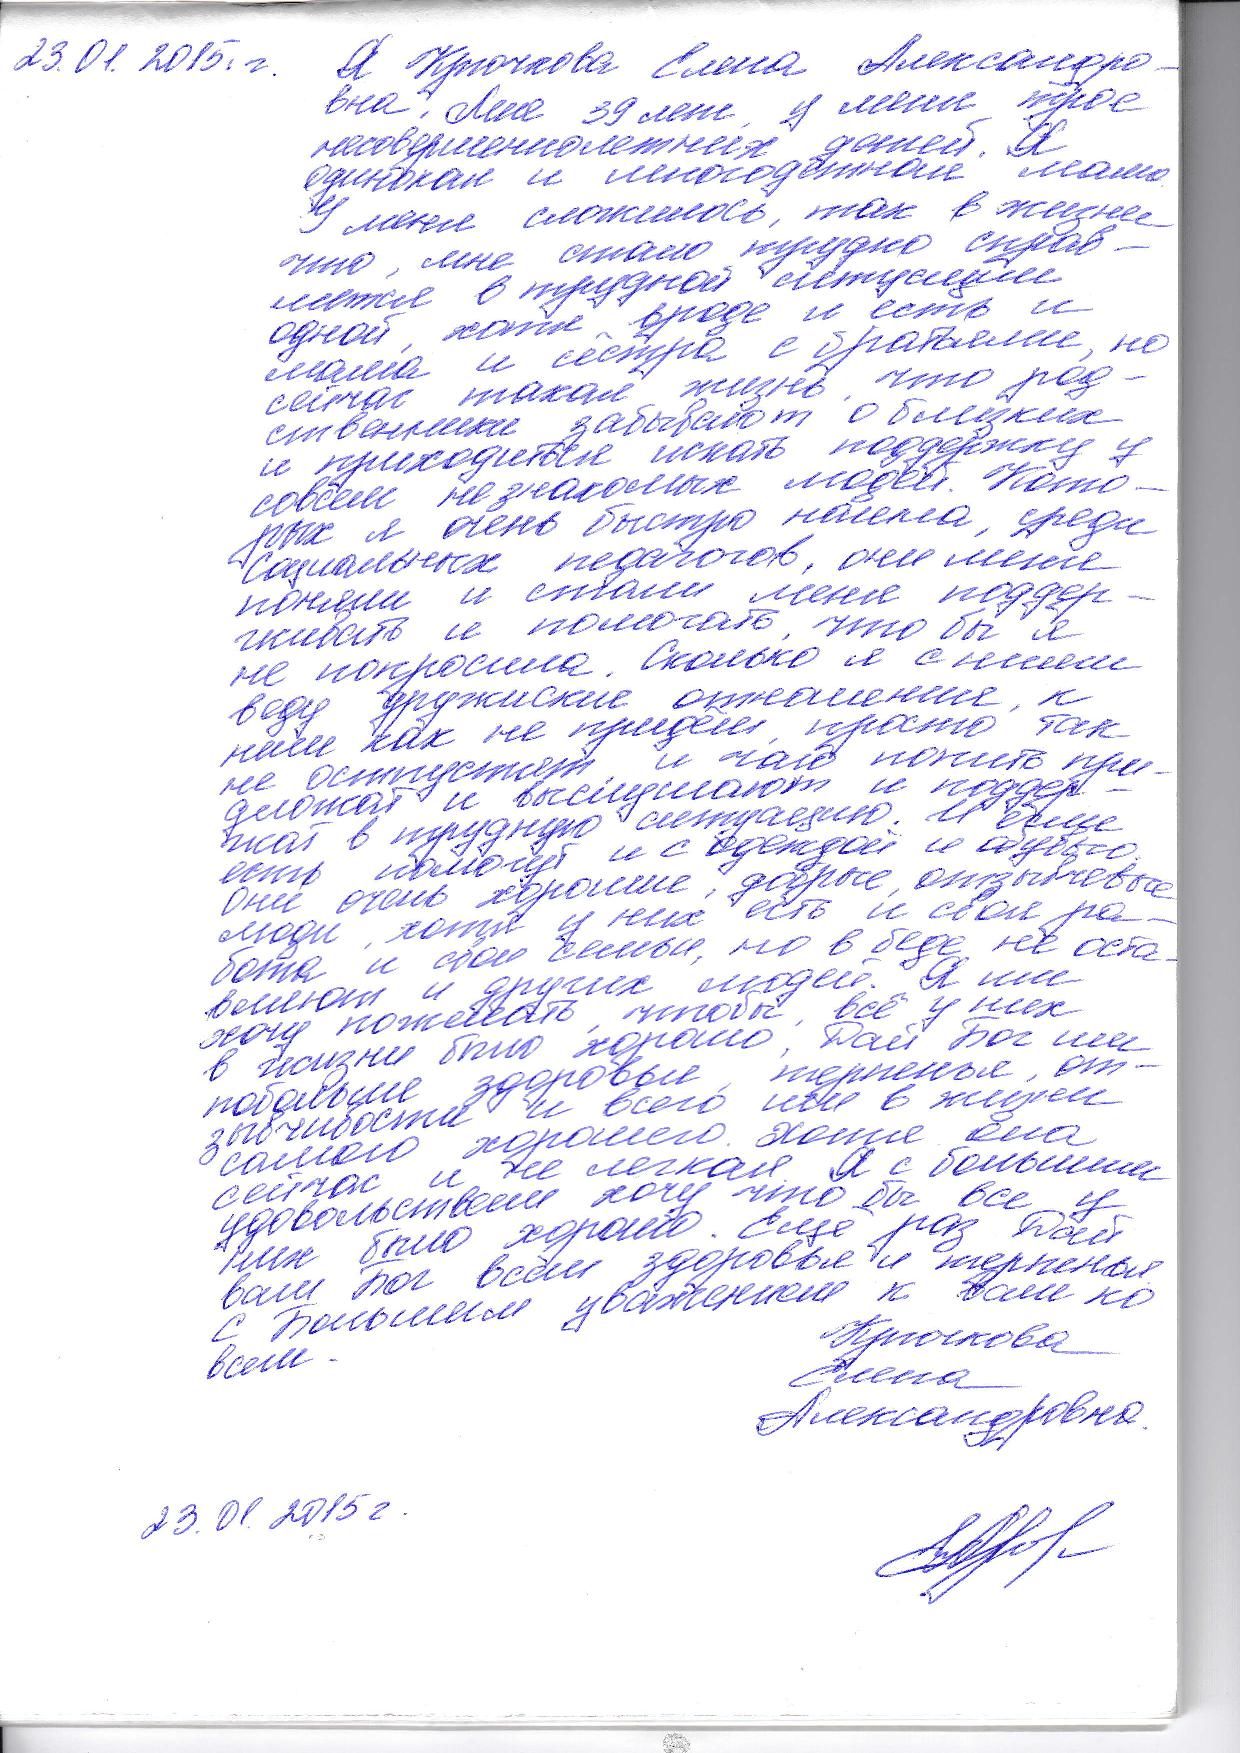 23.01.2015.г. Я Крючкова Елена Александро-
вна. Мне 39 лет, у меня трое
несовершеннолетних детей. Я
одинокая и многодетная мама.
У меня сложилось, так в жизни
что, мне стало трудно справ-
лятся в трудной ситуации
одной, хотя вроде и есть и
мама и сёстра с братьями, но
сейчас такая жизнь, что род-
ственники забывают о близких
и приходиться искать поддержку у
совсем незнакомых людей. Кото-
рых я очень быстро нашла, среди
социальных педагогов, они меня
поняли и стали меня поддер-
живать и помогать, что бы я
не попросила. Сколько я с ними
веду дружиские отнашения, к
ним как не придёш, просто так
не остпустят, и чаю попить при-
дложат и выслушают и поддер-
жат в трудную ситуацию. И вещи
есть помогут и с одеждой и обувью.
Они очень хорошие, добрые, отзычевые
люди, хотя у них есть и своя ра-
бота и свои семьи, но в беде не оста-
вляют и других людей. Я им
хочу пожелать, чтобы, всё у них
в жизни было хорошо, Дай Бог им
побольши здоровья, терпенья, от-
зывчивости и всего им в жизни
самого хорошего. хотя она
сейчас и не легкая Я с большим
удовольствием хочу что бы все у
них было хорошо. Ещё раз Дай
вам Бог всем здоровья и терпенья
с Большим уважением к вам ко
всем.
Крючкова
Елена
Александровна.
23.01.2015г.